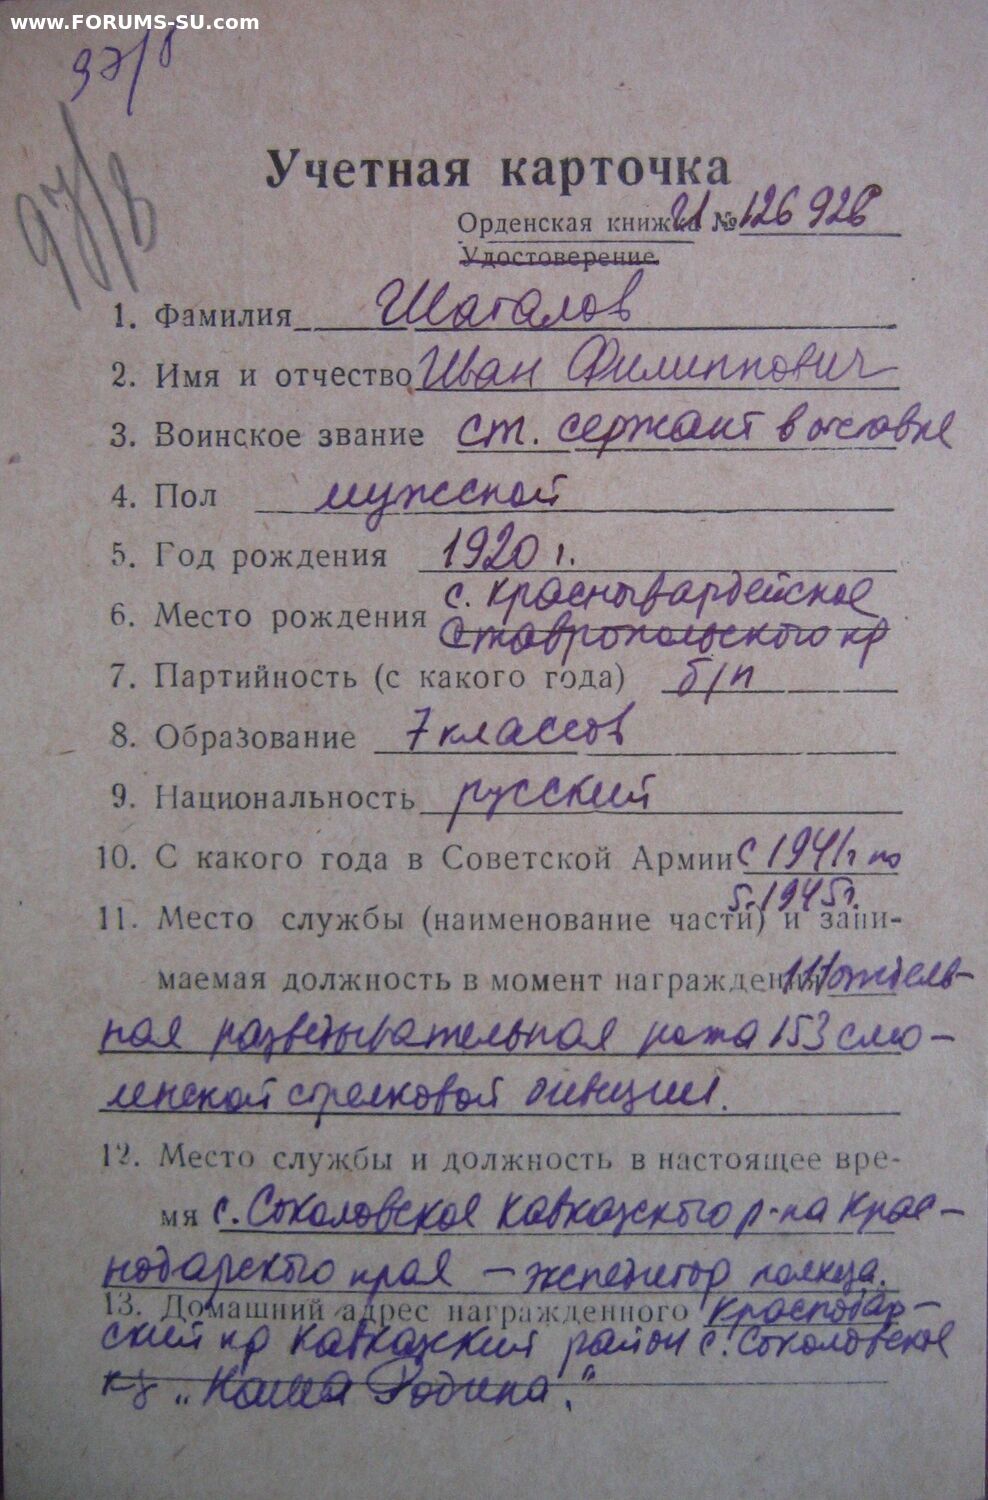 www.FORUMS-SU.com
97/8
97/8
Учетная карточка
Орденская книжка № 126926
Удостоверение
1. Фамилия Шаталов
2. Имя и отчество Иван Филиппович
3. Воинское звание ст. сержант в отставке
4. Пол мужской
5. Год рождения 1920 г.
6. Место рождения с. Красногвардейское
Ставропольского кр
7. Партийность (с какого года) б/п
8. Образование 7 классов
9. Национальность русский
10. С какого года в Советской Армии с 1941 г по
5.1945 г.
11. Место службы (наименование части) и зани-
маемая должность в момент награждения 111 отдель-
ная разведывательная рота 153 смо-
ленской стрелковой дивизии.
12. Место службы и должность в настоящее вре-
мя с. Соколовское Кавказского р-на Крас-
нодарского края — экспедитор колхоза.
13. Домашний адрес награжденного Краснодар-
ский кр Кавказский район с. Соколовское
к-з „Наша Родина."